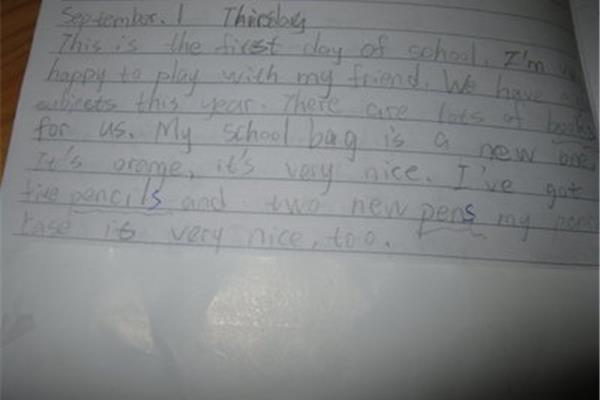 September. 1 Thirsday
This is the first day of school. I'm
happy to play with my friend. We have
subjects this year. There are lots of books
for us. My school bag is a new one.
It's orange, it's very nice. I've got
five pencils and two new pens my
case is very nice, too.